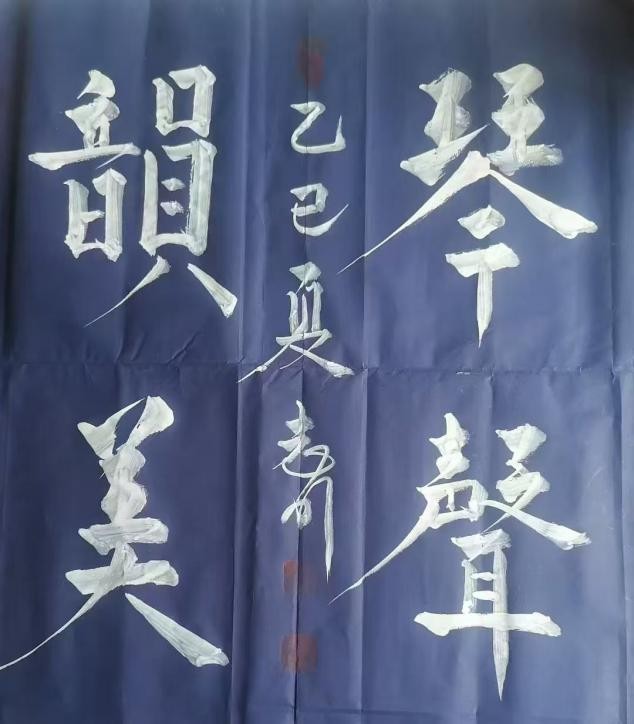 琴聲
乙巳夏
韻美